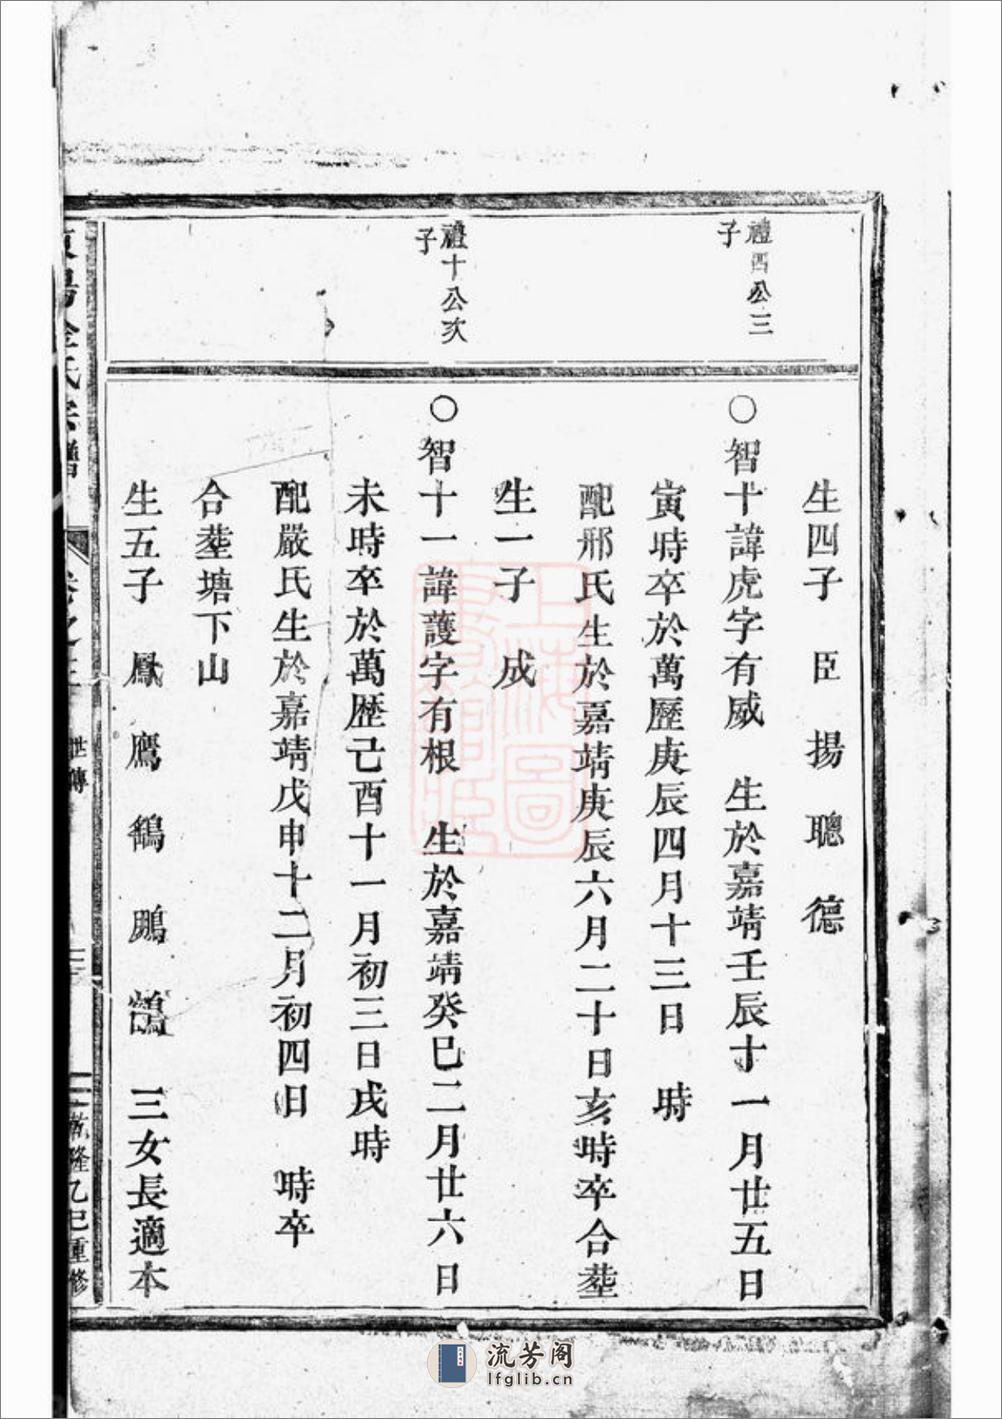 禮四公三
子
禮十公次
子
生四子　臣　揚　聰　德
○智十諱虎字有威　生於嘉靖壬辰十一月廿五日
寅時卒於萬歷庚辰四月十三日　時
配邢氏生於嘉靖庚辰六月二十日亥時卒合塟
生一子　成
○智十一諱護字有根　生於嘉靖癸巳二月廿六日
未時卒於萬歷己酉十一月初三日戌時
配嚴氏生於嘉靖戊申十二月初四日　時卒
合塟塘下山
生五子　鳳　鷹　鶴　鵬　鷂　三女長適本
世傳
乾隆乙巳重修
上海圖
書館藏
流芳阁
lfglib.cn